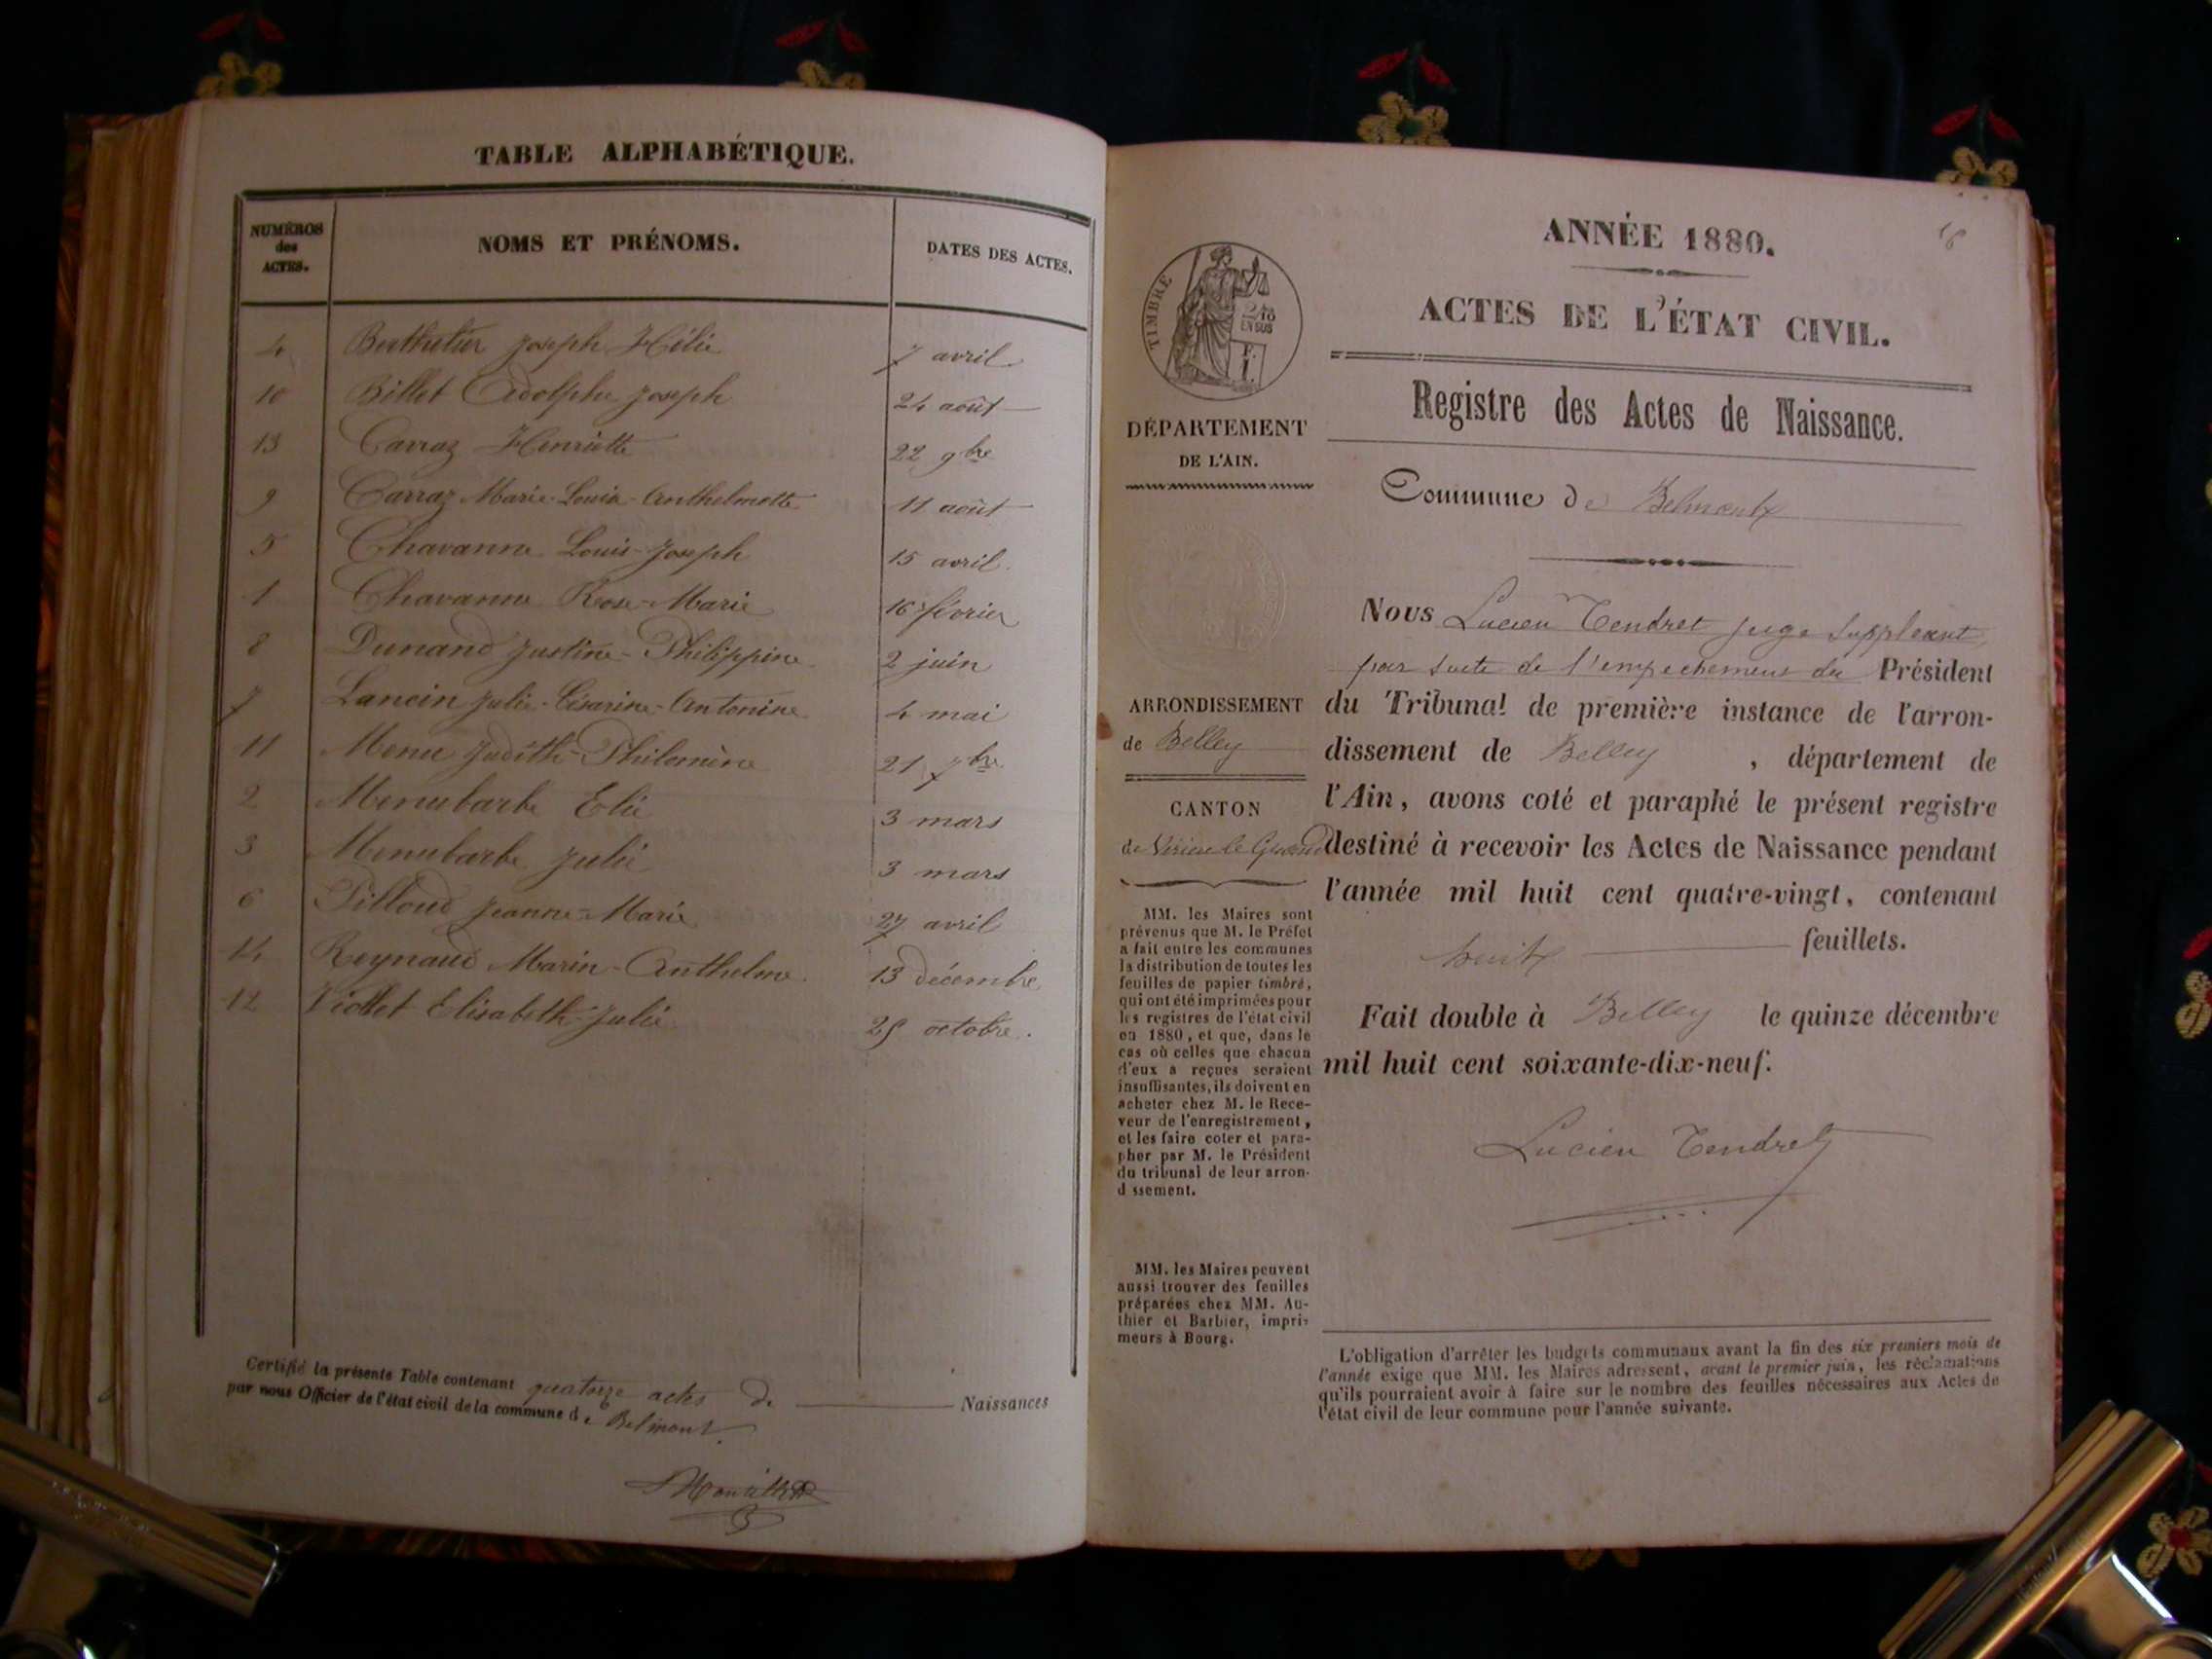 TABLE ALPHABÉTIQUE.
NUMÉROS
des
ACTES.
NOMS ET PRÉNOMS.
DATES DES ACTES.
4 Berthelier Joseph Hélie 7 avril
10 Billet Adolphe Joseph 24 août
13 Carraz Henriette 22 9bre
9 Carraz Marie-Louise-Anthelmette 11 août
5 Chavanne Louis-Joseph 15 avril
1 Chavanne Rose-Marie 16 février
8 Dunand Justine-Philippine 2 juin
7 Lancin Julie-Césarine-Antonine 4 mai
11 Menu Judith-Philomène 21 7bre
2 Menubarbe Elie 3 mars
3 Menubarbe Julie 3 mars
6 Pilloud Jeanne-Marie 27 avril
14 Reynaud Marin-Anthelme 13 décembre
12 Viollet Elisabeth-Julie 25 octobre.
Certifié la présente Table contenant quatorze actes de Naissances
par nous Officier de l'état civil de la commune de Belmont.
ANNÉE 1880.
ACTES DE L'ÉTAT CIVIL.
Registre des Actes de Naissance.
Commune de Belmont
TIMBRE
2/10
EN SUS
DÉPARTEMENT
DE L'AIN.
ARRONDISSEMENT
de Belley
CANTON
de Virieu le Grand
MM. les Maires sont
prévenus que M. le Préfet
a fait entre les communes
la distribution de toutes les
feuilles de papier timbré,
qui ont été imprimées pour
les registres de l'état civil
en 1880, et que, dans le
cas où celles que chacun
d'eux a reçues seraient
insuffisantes, ils doivent en
acheter chez M. le Rece-
veur de l'enregistrement,
et les faire coter et para-
pher par M. le Président
du tribunal de leur arron-
d ssement.
MM. les Maires peuvent
aussi trouver des feuilles
préparées chez MM. Au-
thier et Barbier, impri-
meurs à Bourg.
Nous Lucien Tendret juge suppléant
par suite de l'empechement du Président
du Tribunal de première instance de l'arron-
dissement de Belley, département de
l'Ain, avons coté et paraphé le présent registre
destiné à recevoir les Actes de Naissance pendant
l'année mil huit cent quatre-vingt, contenant
huit feuillets.
Fait double à Belley le quinze décembre
mil huit cent soixante-dix-neuf.
Lucien Tendret
L'obligation d'arrêter les budgets communaux avant la fin des six premiers mois de
l'année exige que MM. les Maires adressent, avant le premier juin, les réclamations
qu'ils pourraient avoir à faire sur le nombre des feuilles nécessaires aux Actes de
l'état civil de leur commune pour l'année suivante.